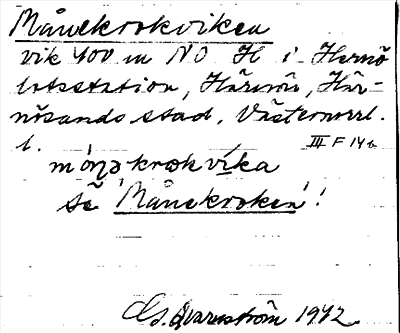 Månekrokviken
vik 400 m NO H i Hernö
lotsstation, Härnön, Här-
nösands stad, Västernorrl.
l. III F 14 b
mǻnəkrokvika
se 'Månekroken'!
G. Qvarnström 1942